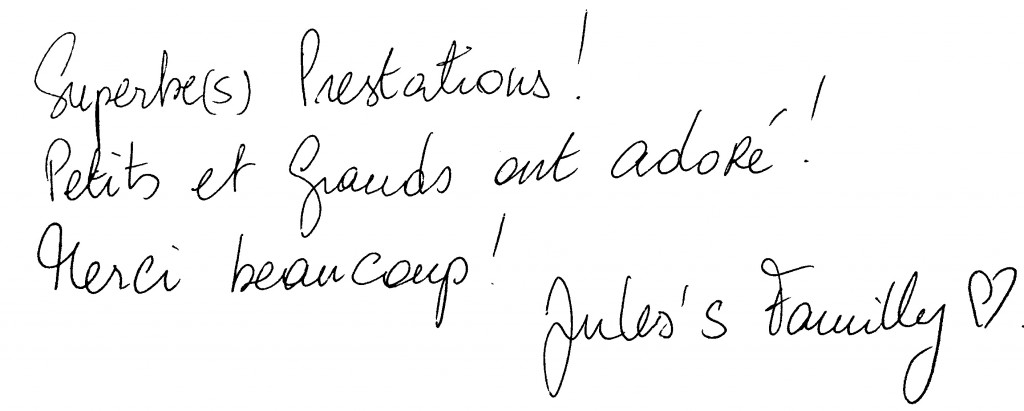 Superbe(s) Prestations !
Petits et Grands ont adoré !
Merci beaucoup !
Jules's Familly ♡.